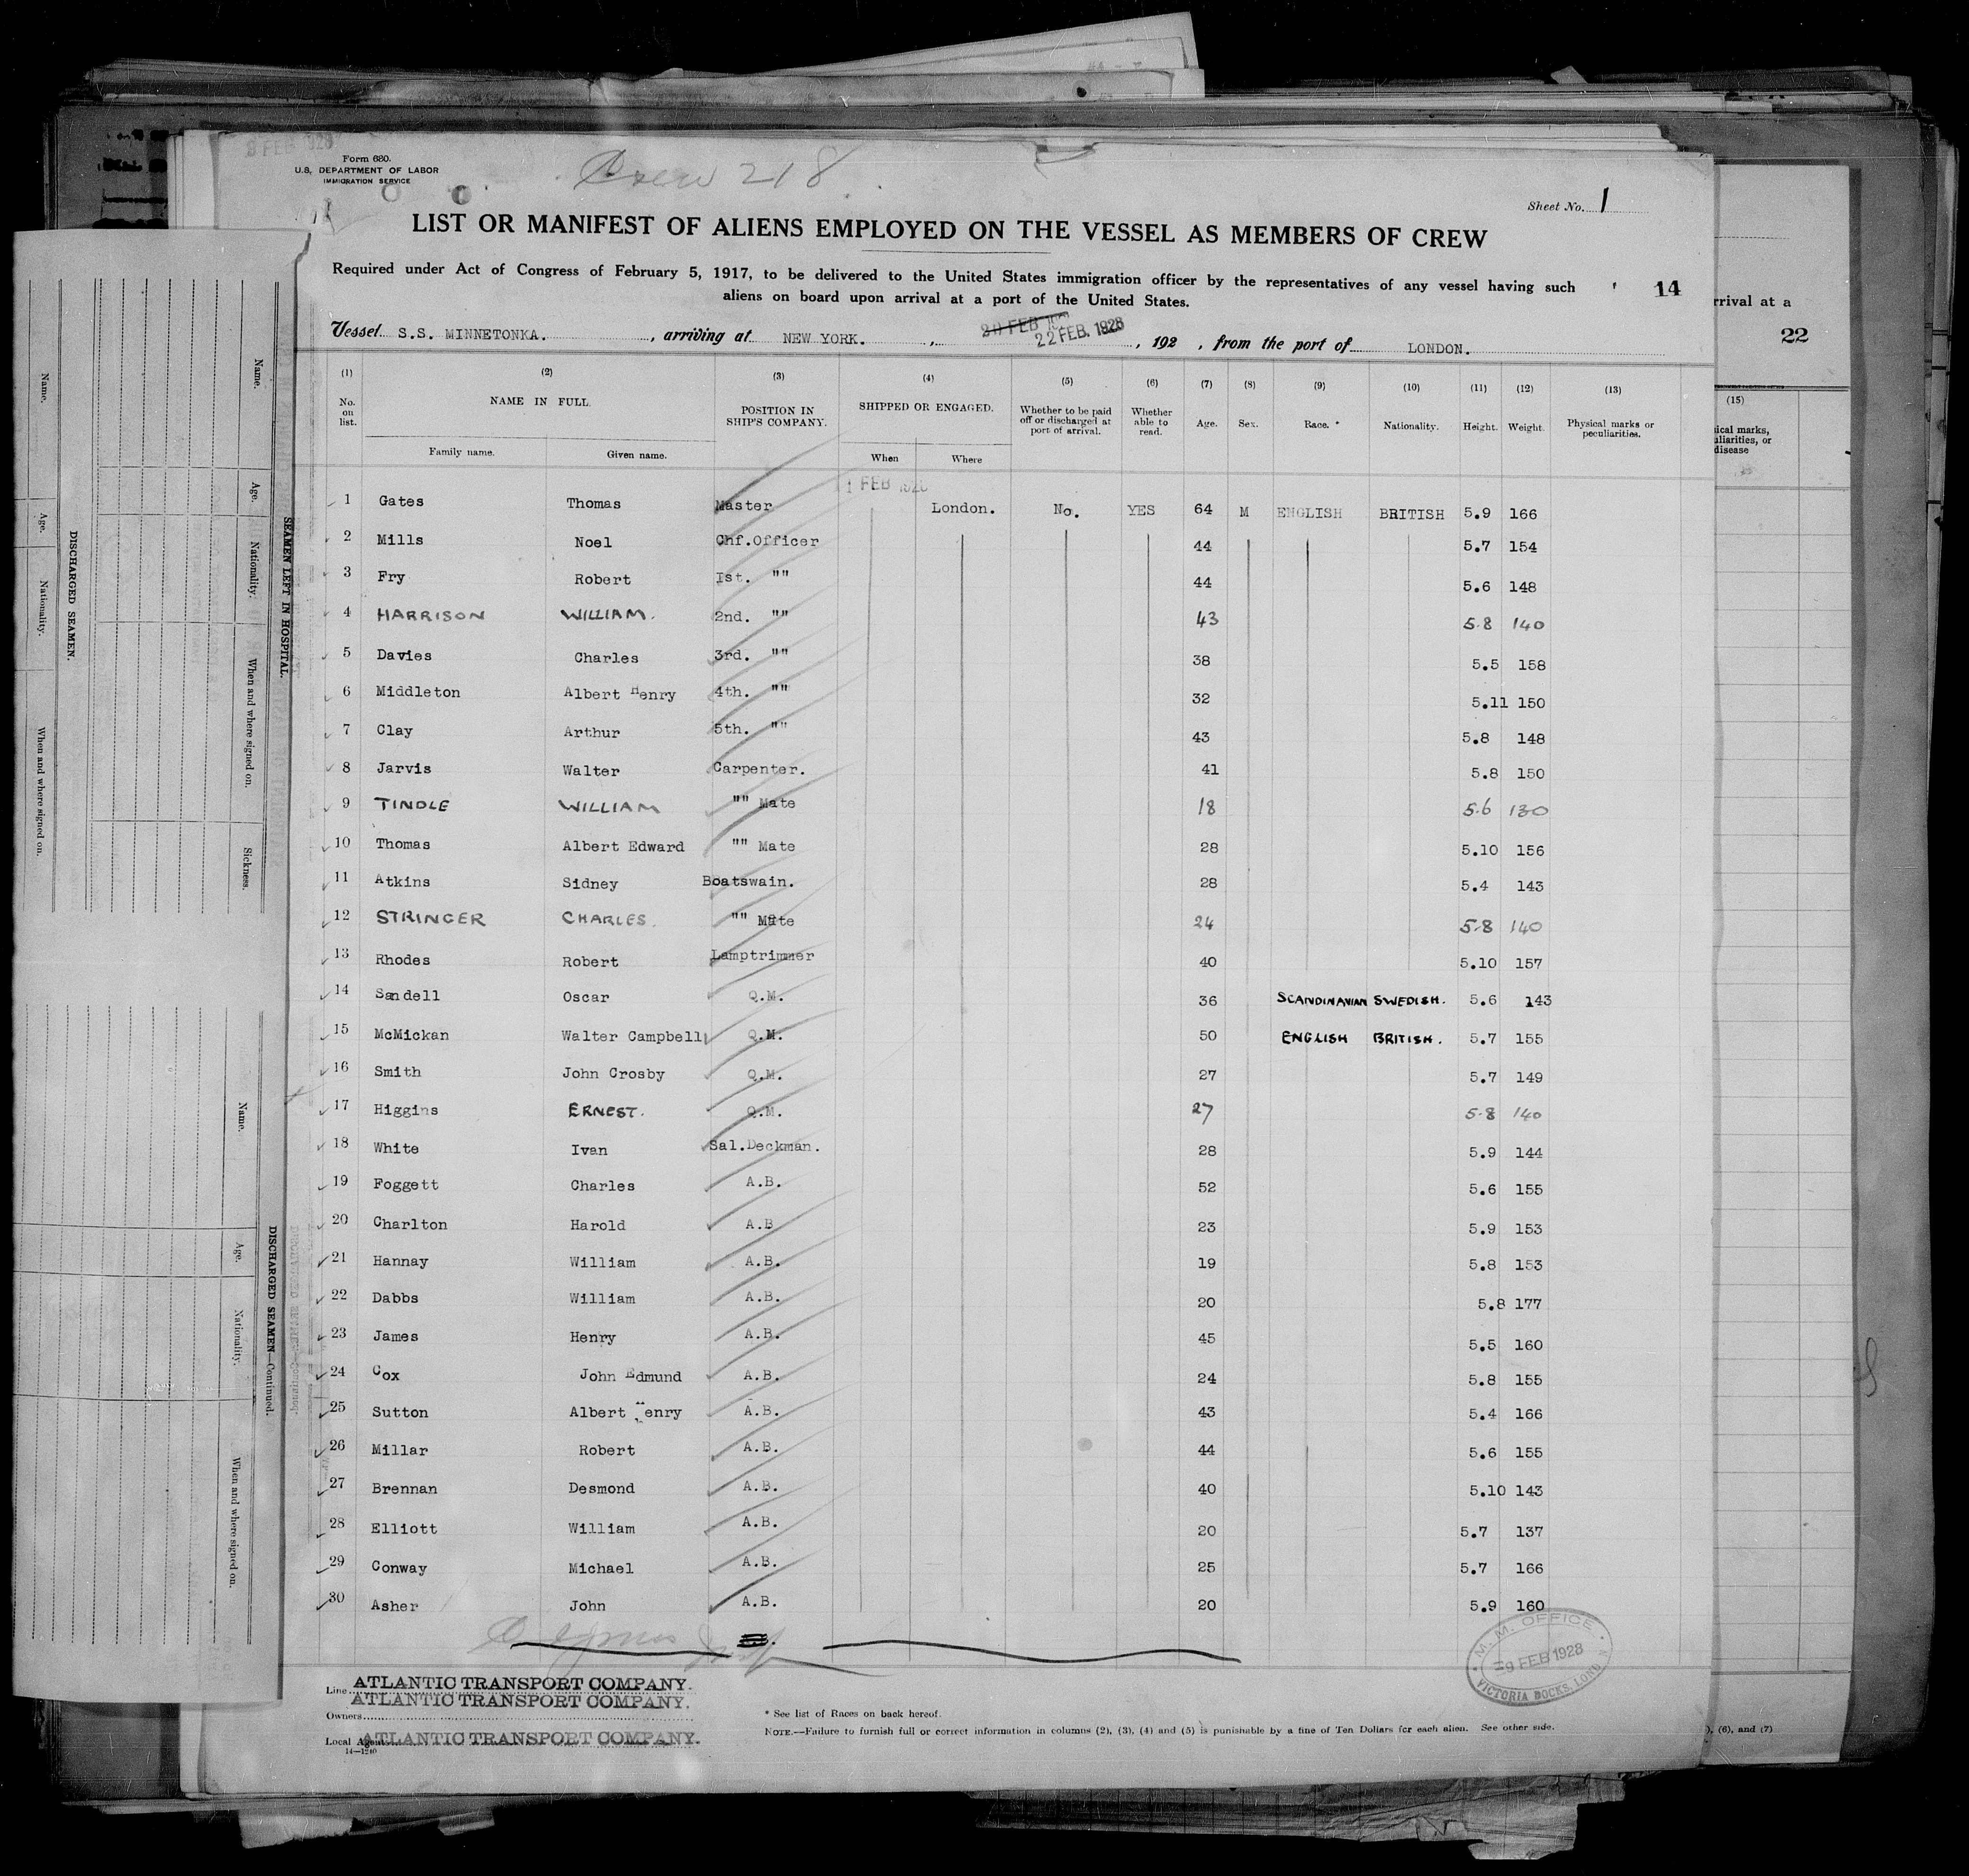 8 FEB 1928
Form 680.
U.S. DEPARTMENT OF LABOR
IMMIGRATION SERVICE
Crew 218
Sheet No. 1
LIST OR MANIFEST OF ALIENS EMPLOYED ON THE VESSEL AS MEMBERS OF CREW
Required under Act of Congress of February 5, 1917, to be delivered to the United States immigration officer by the representatives of any vessel having such
aliens on board upon arrival at a port of the United States.
14
Vessel S.S. MINNETONKA. , arriving at NEW YORK. , 22 FEB. 1928 , 192 , from the port of LONDON.
(1) (2) (3) (4) (5) (6) (7) (8) (9) (10) (11) (12) (13)
No. on list. NAME IN FULL. POSITION IN SHIP'S COMPANY. SHIPPED OR ENGAGED. Whether to be paid off or discharged at port of arrival. Whether able to read. Age. Sex. Race. * Nationality. Height. Weight. Physical marks or peculiarities.
Family name. Given name. When Where
1 FEB 1928
1 Gates Thomas Master London. No. YES 64 M ENGLISH BRITISH 5.9 166
2 Mills Noel Chf.Officer 44 5.7 154
3 Fry Robert Ist. "" 44 5.6 148
4 HARRISON WILLIAM. 2nd. "" 43 5.8 140
5 Davies Charles 3rd. "" 38 5.5 158
6 Middleton Albert Henry 4th. "" 32 5.11 150
7 Clay Arthur 5th. "" 43 5.8 148
8 Jarvis Walter Carpenter. 41 5.8 150
9 TINDLE WILLIAM "" Mate 18 5.6 130
10 Thomas Albert Edward "" Mate 28 5.10 156
11 Atkins Sidney Boatswain. 28 5.4 143
12 STRINGER CHARLES. "" Mate 24 5.8 140
13 Rhodes Robert Lamptrimmer 40 5.10 157
14 Sandell Oscar Q.M. 36 SCANDINAVIAN SWEDISH. 5.6 143
15 McMickan Walter Campbell Q.M. 50 ENGLISH BRITISH. 5.7 155
16 Smith John Crosby Q.M. 27 5.7 149
17 Higgins ERNEST. Q.M. 27 5.8 140
18 White Ivan Sal.Deckman. 28 5.9 144
19 Foggett Charles A.B. 52 5.6 155
20 Charlton Harold A.B 23 5.9 153
21 Hannay William A.B. 19 5.8 153
22 Dabbs William A.B. 20 5.8 177
23 James Henry A.B. 45 5.5 160
24 Cox John Edmund A.B. 24 5.8 155
25 Sutton Albert Henry A.B. 43 5.4 166
26 Millar Robert A.B. 44 5.6 155
27 Brennan Desmond A.B. 40 5.10 143
28 Elliott William A.B. 20 5.7 137
29 Conway Michael A.B. 25 5.7 166
30 Asher John A.B. 20 5.9 160
M. M. OFFICE
9 FEB 1928
VICTORIA DOCKS, LONDON
Line ATLANTIC TRANSPORT COMPANY.
Owners ATLANTIC TRANSPORT COMPANY.
Local Agent ATLANTIC TRANSPORT COMPANY.
14—1240
* See list of Races on back hereof.
NOTE.—Failure to furnish full or correct information in columns (2), (3), (4) and (5) is punishable by a fine of Ten Dollars for each alien. See other side.
rrival at a
22
(15)
ical marks,
liarities, or
disease
), (6), and (7)
SEAMEN LEFT IN HOSPITAL.
Name. Age. Nationality. When and where signed on. Sickness.
DISCHARGED SEAMEN.
Name. Age. Nationality. When and where signed on.
DISCHARGED SEAMEN—Continued.
Name. Age. Nationality. When and where signed on.